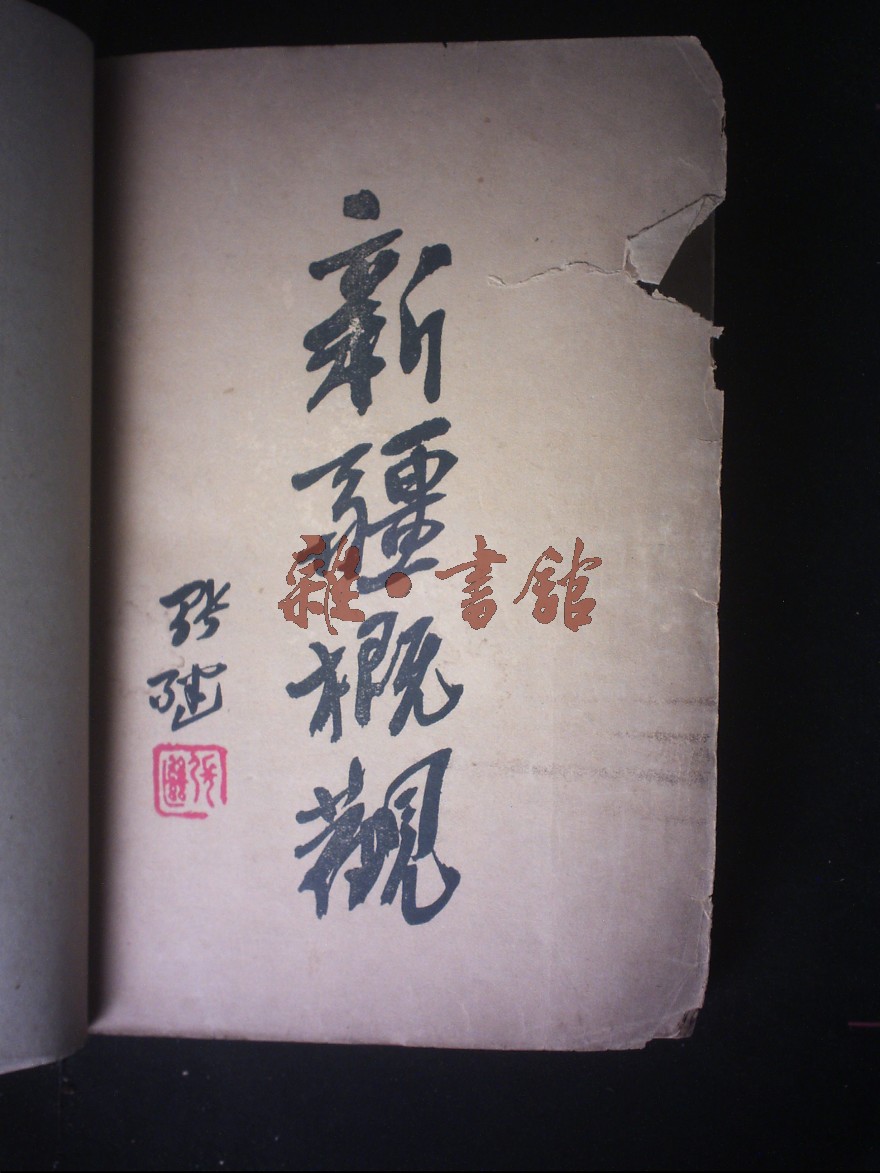 新疆概觀
張繼
雜·書館